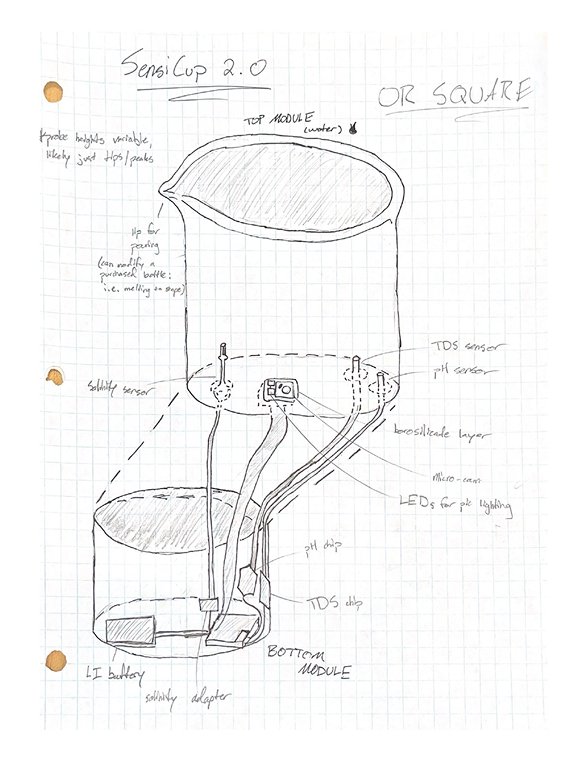 SensiCup 2.0
OR SQUARE
TOP MODULE
(water)
*probe heights variable,
likely just tips/peaks
lip for
pouring
(can modify a
purchased bottle:
i.e. melting to shape)
TDS sensor
pH sensor
Salinity sensor
borosilicate layer
micro-cam
LEDs for pic lighting
pH chip
TDS chip
BOTTOM
MODULE
LI battery
salinity adapter